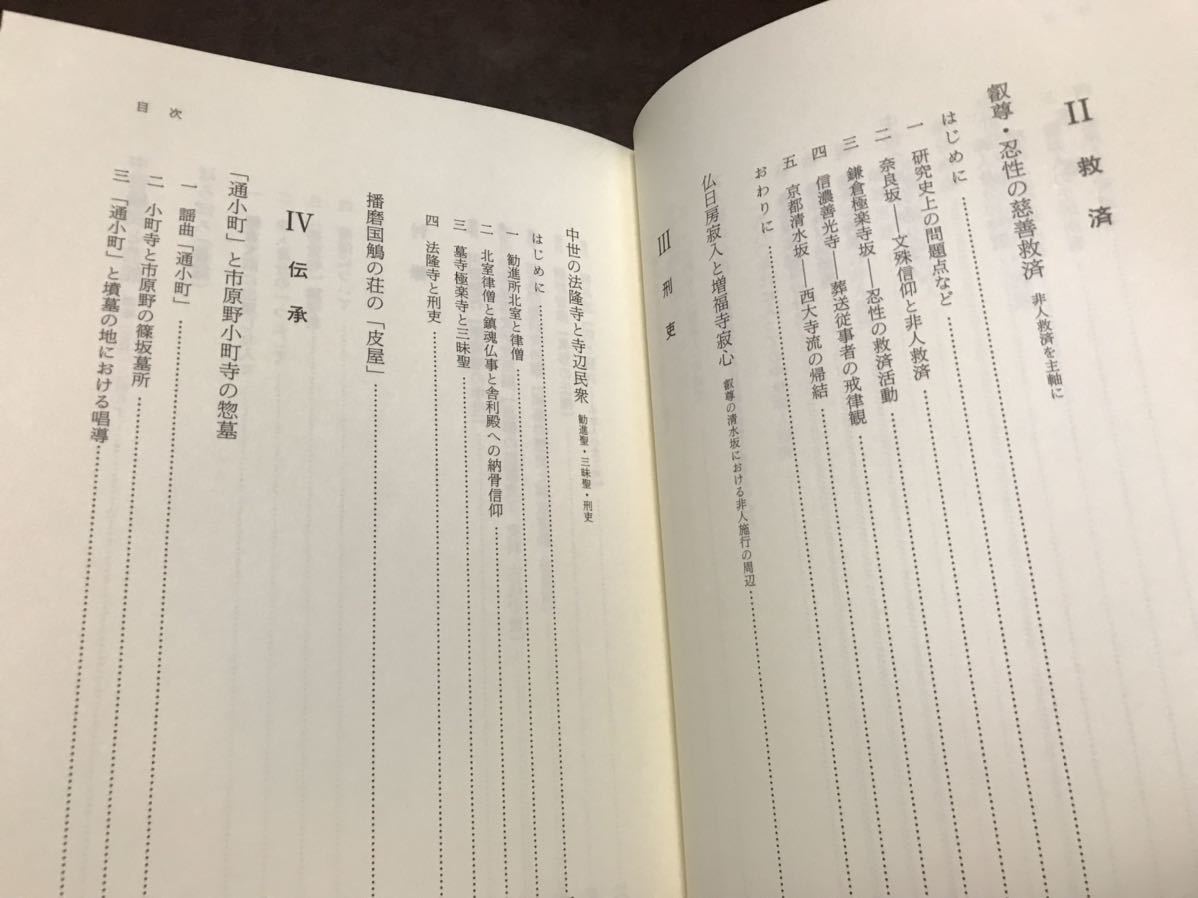 II 救済
叡尊・忍性の慈善救済 非人救済を主軸に
はじめに
一 研究史上の問題点など
二 奈良坂――文殊信仰と非人救済
三 鎌倉極楽寺坂――忍性の救済活動
四 信濃善光寺――葬送従事者の戒律観
五 京都清水坂――西大寺流の帰結
おわりに
仏日房寂入と増福寺寂心 叡尊の清水坂における非人施行の周辺
III 刑吏
中世の法隆寺と寺辺民衆 勧進聖・三昧聖・刑吏
はじめに
一 勧進所北室と律僧
二 北室律僧と鎮魂仏事と舎利殿への納骨信仰
三 墓寺極楽寺と三昧聖
四 法隆寺と刑吏
播磨国鵤の荘の「皮屋」
IV 伝承
「通小町」と市原野小町寺の惣墓
一 謡曲「通小町」
二 小町寺と市原野の篠坂墓所
三 「通小町」と墳墓の地における唱導
目次